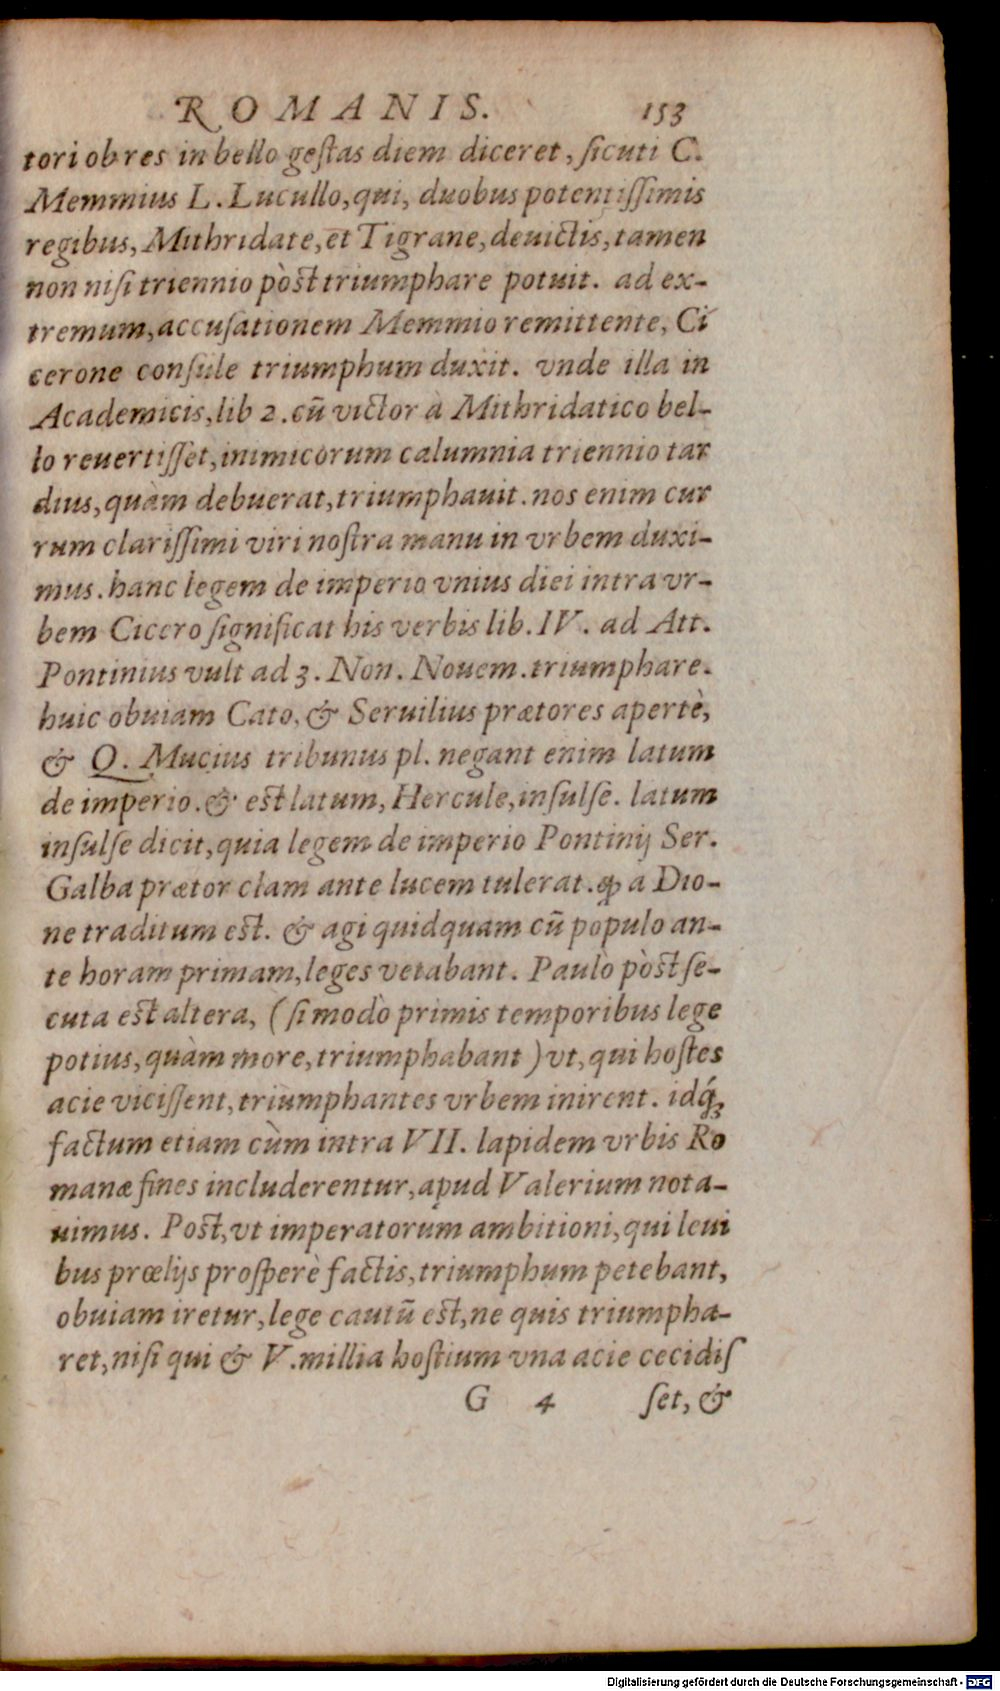 ROMANIS. 153
tori ob res in bello gestas diem diceret, sicuti C.
Memmius L. Lucullo, qui, duobus potentissimis
regibus, Mithridate, et Tigrane, deuictis, tamen
non nisi triennio pòst triumphare potuit. ad ex-
tremum, accusationem Memmio remittente, Ci
cerone consule triumphum duxit. vnde illa in
Academicis, lib 2. cũ victor à Mithridatico bel-
lo reuertisset, inimicorum calumnia triennio tar
dius, quàm debuerat, triumphauit. nos enim cur
rum clarissimi viri nostra manu in vrbem duxi-
mus. hanc legem de imperio vnius diei intra vr-
bem Cicero significat his verbis lib. IV. ad Att.
Pontinius vult ad 3. Non. Nouem. triumphare.
huic obuiam Cato, & Seruilius prætores apertè,
& Q. Mucius tribunus pl. negant enim latum
de imperio. & est latum, Hercule, insulse. latum
insulse dicit, quia legem de imperio Pontinij Ser.
Galba prætor clam ante lucem tulerat. ꝙ a Dio-
ne traditum est. & agi quidquam cũ populo an-
te horam primam, leges vetabant. Paulò pòst se-
cuta est altera, (si modò primis temporibus lege
potius, quàm more, triumphabant) vt, qui hostes
acie vicissent, triumphantes vrbem inirent. idq́;
factum etiam cùm intra VII. lapidem vrbis Ro
manæ fines includerentur, apud Valerium nota-
uimus. Post, vt imperatorum ambitioni, qui leui
bus prœlijs prosperè factis, triumphum petebant,
obuiam iretur, lege cautũ est, ne quis triumpha-
ret, nisi qui & V. millia hostium vna acie cecidis
G 4 set, &
Digitalisierung gefördert durch die Deutsche Forschungsgemeinschaft - DFG